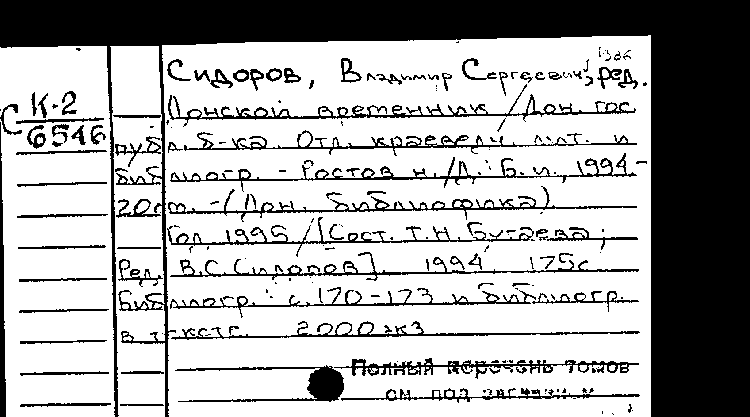 1386
Сидоров, Владимир Сергеевич, ред.
К-2
С 6546
Донской временник / Дон. гос
публ. б-ка. Отд. краеведч. лит. и
библиогр. - Ростов н./Д.: Б.и., 1994.-
20см. -(Дон. библиофика)
Год 1995 / [Сост. Т.Н. Бугаева;
Ред. В.С. Сидоров]. 1994 175с
Библиогр.: с.170-173 и библиогр.
в тексте. 2000экз
Полный перечень томов
см. под